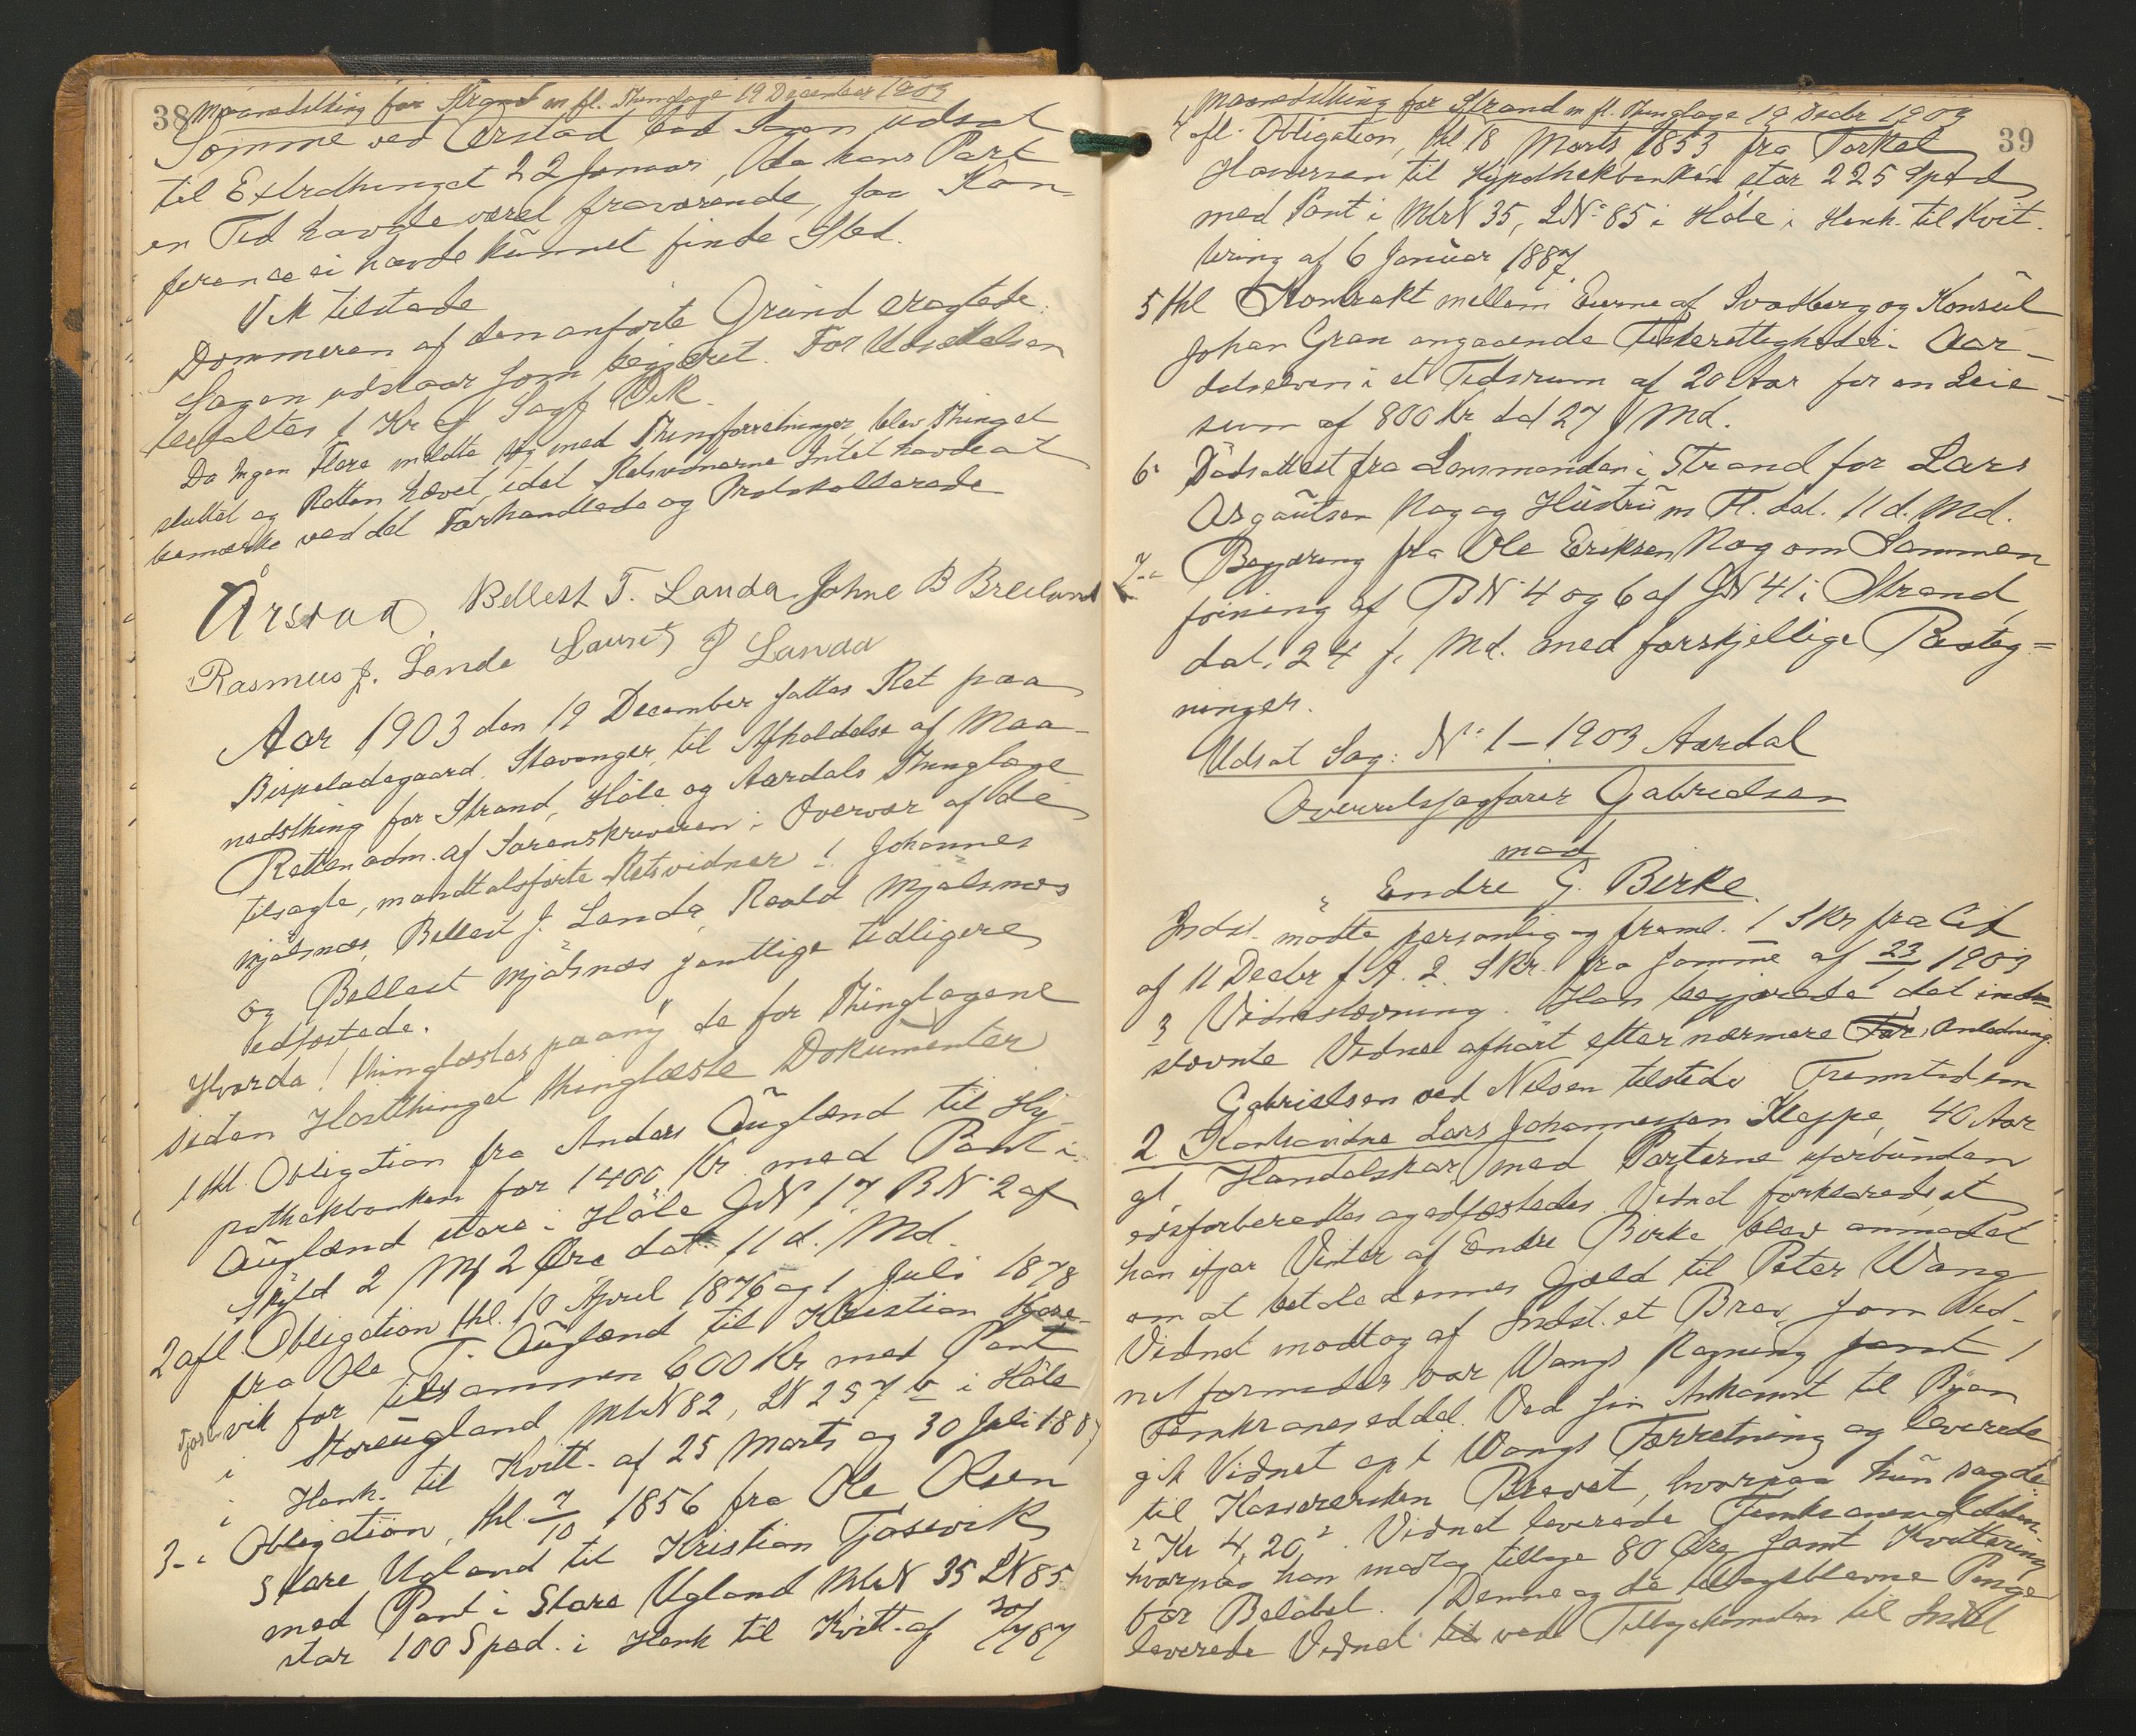 38 Maanedsthing for Strand m fl. Thinglage 19 December 1903
Somme ved Ørstad, bad Sagen udsat
til Extrathinget 22 Januar, da hans Part
en Tid havde været fraværende, saa Kon-
ferance ei havde kunnet finde Sted.
Vik tilstede
Dommeren af den anførte Grund eragtede:
Sagen udstaar som begjæret. For Udsættelsen
betaltes 1 Kr af Sagf Vik.
Da Ingen Flere meldte sig med Thingforretninger, blev Thinget
sluttet og Retten hævet, idet Retsvidnerne Intet havde at
bemærke ved det Forhandlede og Protokollerede
Årstad, Bellest T. Landa. Johne B Breiland
Rasmus J. Lande Laurits P Landaa
Aar 1903 den 19 December sattes Ret paa
Bispeladegaard, Stavanger, til Afholdelse af Maa-
nedsthing for Strand, Høle og Aardals Thinglage
Retten adm. af Sorenskriveren i Overvær af de
tilsagte, mandtalsførte Retsvidner: Johannes
Mjølsnæs, Bellest J. Landa, Roald Mjølsnæs
og Bellest Mjølsnæs samtlige tidligere
edfæstede.
Hvorda! thinglæstes paany de for Thinglagene
siden Høstthinget thinglæste Dokumenter
1 thl. Obligation fra Anders Auglænd til Hy-
pothekbanken for 1400 Kr. med Pant i
Auglænd store i Høle GN 17 BN 2 af
Skyld 2 Mk 2 Øre dat. 11 d. Md.
2 afl. Obligation thl. 10 April 1876 og 1 Juli 1878
fra Ole T. Auglænd til Kristian
Tjose-vik for tilsammen 600 Kr. med Pant
i Storeugland MtrN 82, LN 257 b i Høle
i Henh. til Kvitt. af 25 Marts og 30 Juli 1887
3 - " Obligation, thl. 7/10 1856 fra Ole Olsen
Store Ugland til Kristian Tjosevik
med Pant i Store Ugland MtrN 35 LN 85
stor 100 Spd. i Henh til Kvitt. af 30/7 87
Maanedsthing for Strand m fl. Thinglage 19 Decbr 1903
39
4 afl. Obligation, thl 18 Marts 1853 fra Torkel
Halversen til Hypothekbanken stor 225 Spd
med Pant i MtrN 35, LN: 85 i Høle i Henh. til Kvit-
tering af 6 Januar 1887.
5 thl Kontrakt mellem Eierne af Svadberg og Konsul
Johan Gran angaaende Fiskerettigheder i Aar-
dalselven i et Tidsrum af 20 Aar for en Leie-
sum af 800 Kr dat 27 f Md.
6 " Dødsattest fra Lensmanden i Strand for Lars
Asgautsen Nag og Hustru m Fl. dat. 11 d. Md.
7 - " Begjæring fra Ole Eriksen Nag om Sammen
føining af BN 4 og 6 af GN 41 i Strand,
dat. 24 f. Md. med forskjellige Paateg=
ninger.
Udsat Sag: No 1 – 1903 Aardal
Overretssagfører Gabrielsen
mod
Endre G. Birke.
Indst. mødte personlig og freml. 1 SKr fra Cit
af 11 Decbr f A. 2. SKr. fra samme af 23 1903
3 Vidnestævning. Han begjærede det ind-
stævnte Vidne afhørt efter nærmere Anledning.
Gabrielsen ved Nilsen tilstede Fremstod som
2 Kontravidne Lars Johannessen Kleppe, 40 Aar
gl. Handelskar, med Parterne uforbunden
edsforberedtes og edfæstedes. Vidnet forklarede at
han ifjor Vinter af Endre Birke blev anmodet
om at betale dennes Gjæld til Peter Wang
Vidnet modtog af Indst. et Brev, som Vid-
net formoder var Wangs Regning samt 1
Femkroneseddel. Ved sin Ankomst til Byen
gik Vidnet op i Wangs Forretning og leverede
til Kassørersken Brevet, hvorpaa hun sagde:
" Kr 4,20 ". Vidnet leverede Femkroneseddelen
hvorpaa han modtog tillage 80 Øre samt Kvittering
for Beløbet. Denne og de tilbageblevne Penge
leverede Vidnet ved Tilbagekomsten til Indst